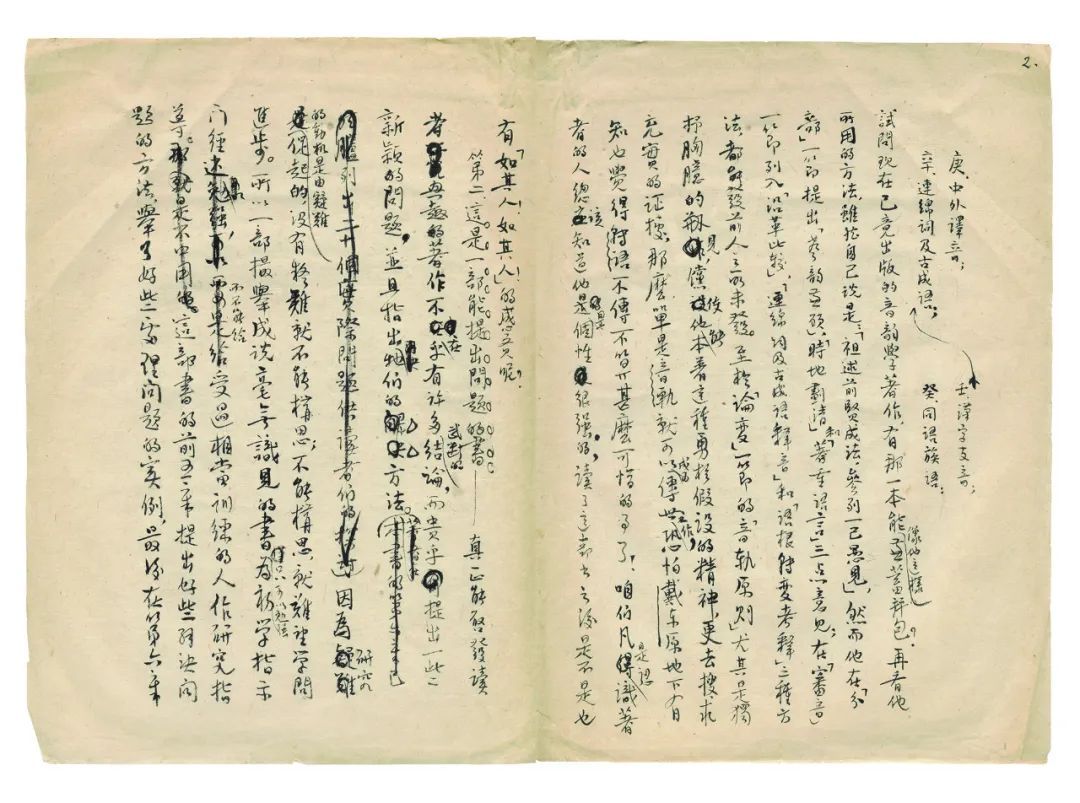 2.
庚、中外譯音；
壬、漢字支音；
辛、連綿詞及古成語；
癸、同語族語；
試問現在已竟出版的音韻學著作，有那一本能像他這樣兼蓄并包？再看他
所用的方法，雖說自己說是「祖述前賢成法，參列一己愚見」，然而他在「分
部」一節提出「考韻兼顧」，「時地劃清」和「著重語言」三點意見；在「審音」
一節列入「沿革比較」，「連綿詞及古成語釋音」和「語根轉變考釋」三種方
法，都能發前人之所未發。至於「論變」一節的「音軌原則」尤其是獨
抒胸臆的創見，僅使他能本着這種勇於假設的精神，更去搜求
充實的證據，那麼單是「音軌」就可以成為傳世工作，恐怕戴東原地下有
知也覺得轉語不傳不算甚麼可惜的事了。咱們凡是認識著
者的人總該知道他是個個性很強的，讀了這部書之後是不是也
有「如其人！如其人！」的感覺呢？
第二，這是一部能提出問題的書——真正能啓發讀
者興趣的著作不在乎有許多武斷的結論，而貴乎提出一些
新穎的問題，並且指出牠們的解決方法。本書的第章已
臚列出二十個實際問題供讀者們的探討，因為研究
的動機是由疑難
引起的，沒有疑難就不能構思；不能構思就難望學問
進步。所以一部撮舉成說毫無識見的書僅只可以為初學指示
門徑，而不能給受過相當訓練的人作研究指
導。這部書的前五章提出好些解決問
題的方法，舉了好些處理問題的實例，最後在第六章